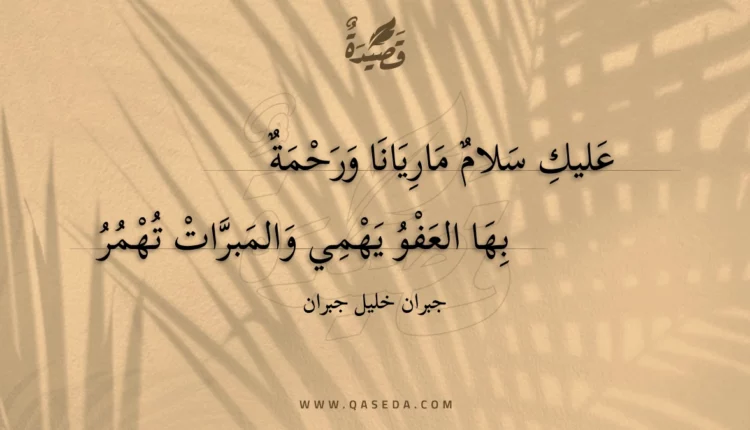 قَصِيدَةٌ
عَليكِ سَلامٌ مَارِيَانَا وَرَحْمَةٌ
بِهَا العَفْوُ يَهْمِي وَالمَبرَّاتْ تُهْمُرُ
جبران خليل جبران
WWW.QASEDA.COM